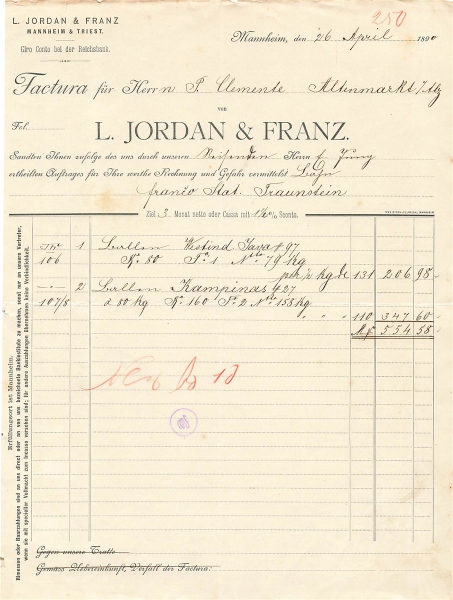 250
L. JORDAN & FRANZ
MANNHEIM & TRIEST.
Giro Conto bei der Reichsbank.
Mannheim, den 26 April 1890
Factura für Herrn P. Clemente Altenmarkt /Alz
von
Fol.
L. JORDAN & FRANZ.
Sandten Ihnen zufolge des uns durch unseren Reisenden Herrn E. Jung
ertheilten Auftrages für Ihre werthe Rechnung und Gefahr vermittelst Bahn
franco Stat. Traunstein
Ziel 3 Monat netto oder Cassa mit % Sconto.
1 Ballen Westind Java # 97
106 K. 80 T. 1 Nto 79 Kg
per ½ Kg 131 206 98
2 Ballen Kampinas # 27
107/8 à 80 Kg K. 160 T. 2 Nto 158 Kg
" " " 110 347 60
M. 554 58
18
Erfüllungsort ist Mannheim.
Rimessen oder Baarzahlungen sind an uns direct oder an von uns bezeichnete Bankinstitute zu machen, sonst nur an unsere Vertreter,
wenn sie mit specieller Vollmacht zum Incasso versehen sind; für andere Auszahlungen übernehmen keine Verbindlichkeit.
Gegen unsere Tratte
Gemäss Uebereinkunft, Verfall der Factura: